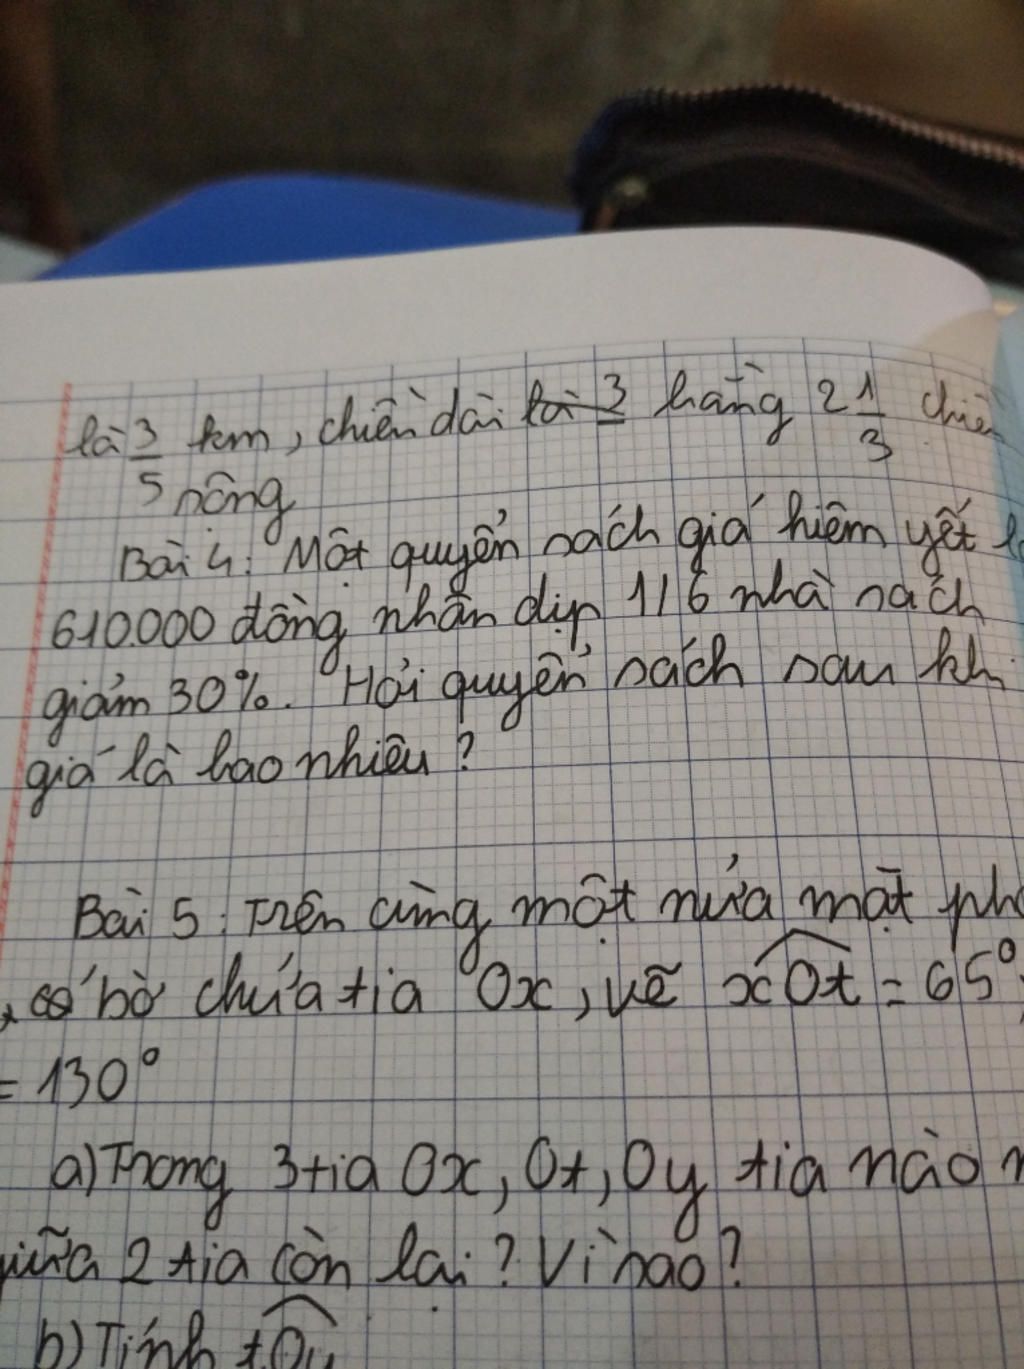 là 3/5 km, chiều dài là 3 bằng 2 1/3 chiều
rộng
Bài 4: Một quyển sách giá niêm yết
610.000 đồng nhân dịp 1/6 nhà sách
giảm 30%. Hỏi quyển sách sau kh
giá là bao nhiêu?
Bài 5: Trên cùng một nửa mặt ph
có bờ chứa tia Ox, vẽ xOt = 65°
= 130°
a) Trong 3 tia Ox, Ot, Oy tia nào n
giữa 2 tia còn lại? Vì sao?
b) Tính tOy